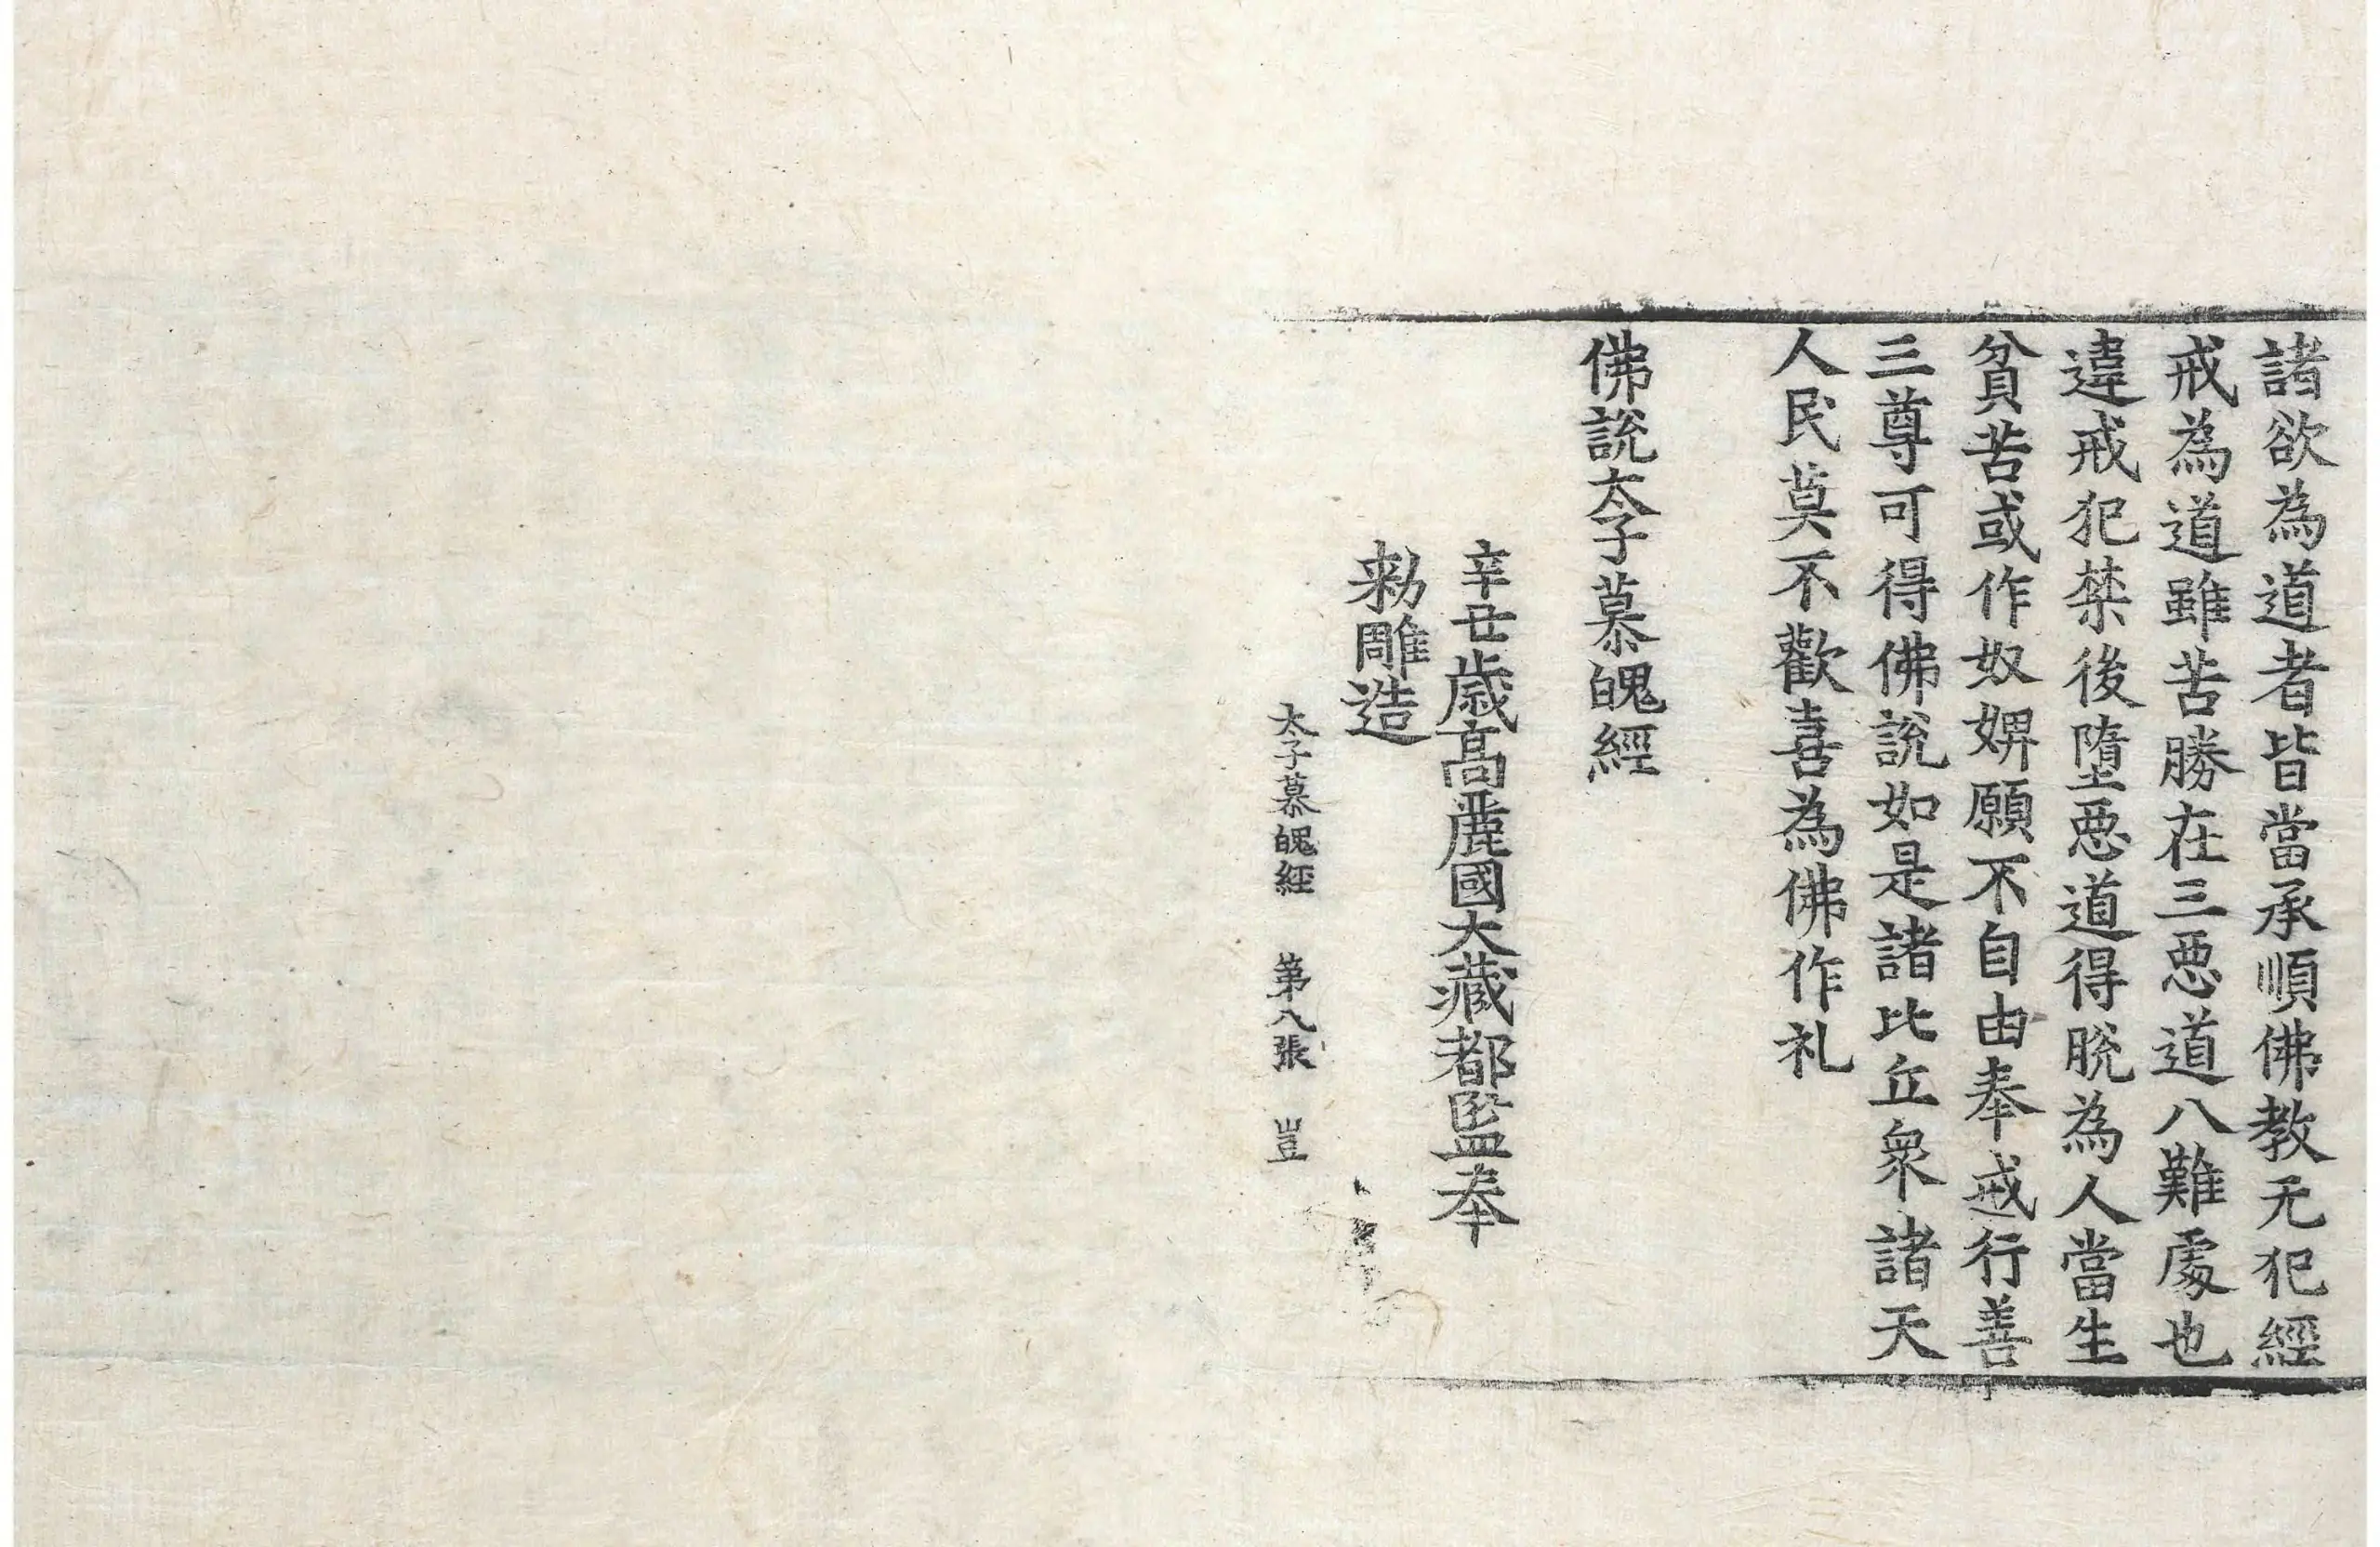 諸欲為道者皆當承順佛教无犯經
戒為道雖苦勝在三惡道八難處也
違戒犯禁後墮惡道得脫為人當生
貧苦或作奴婢願不自由奉戒行善
三尊可得佛說如是諸比丘衆諸天
人民莫不歡喜為佛作礼
佛說太子慕魄經
辛丑歲高麗國大藏都監奉
勑雕造
太子慕魄經 第八張 豈